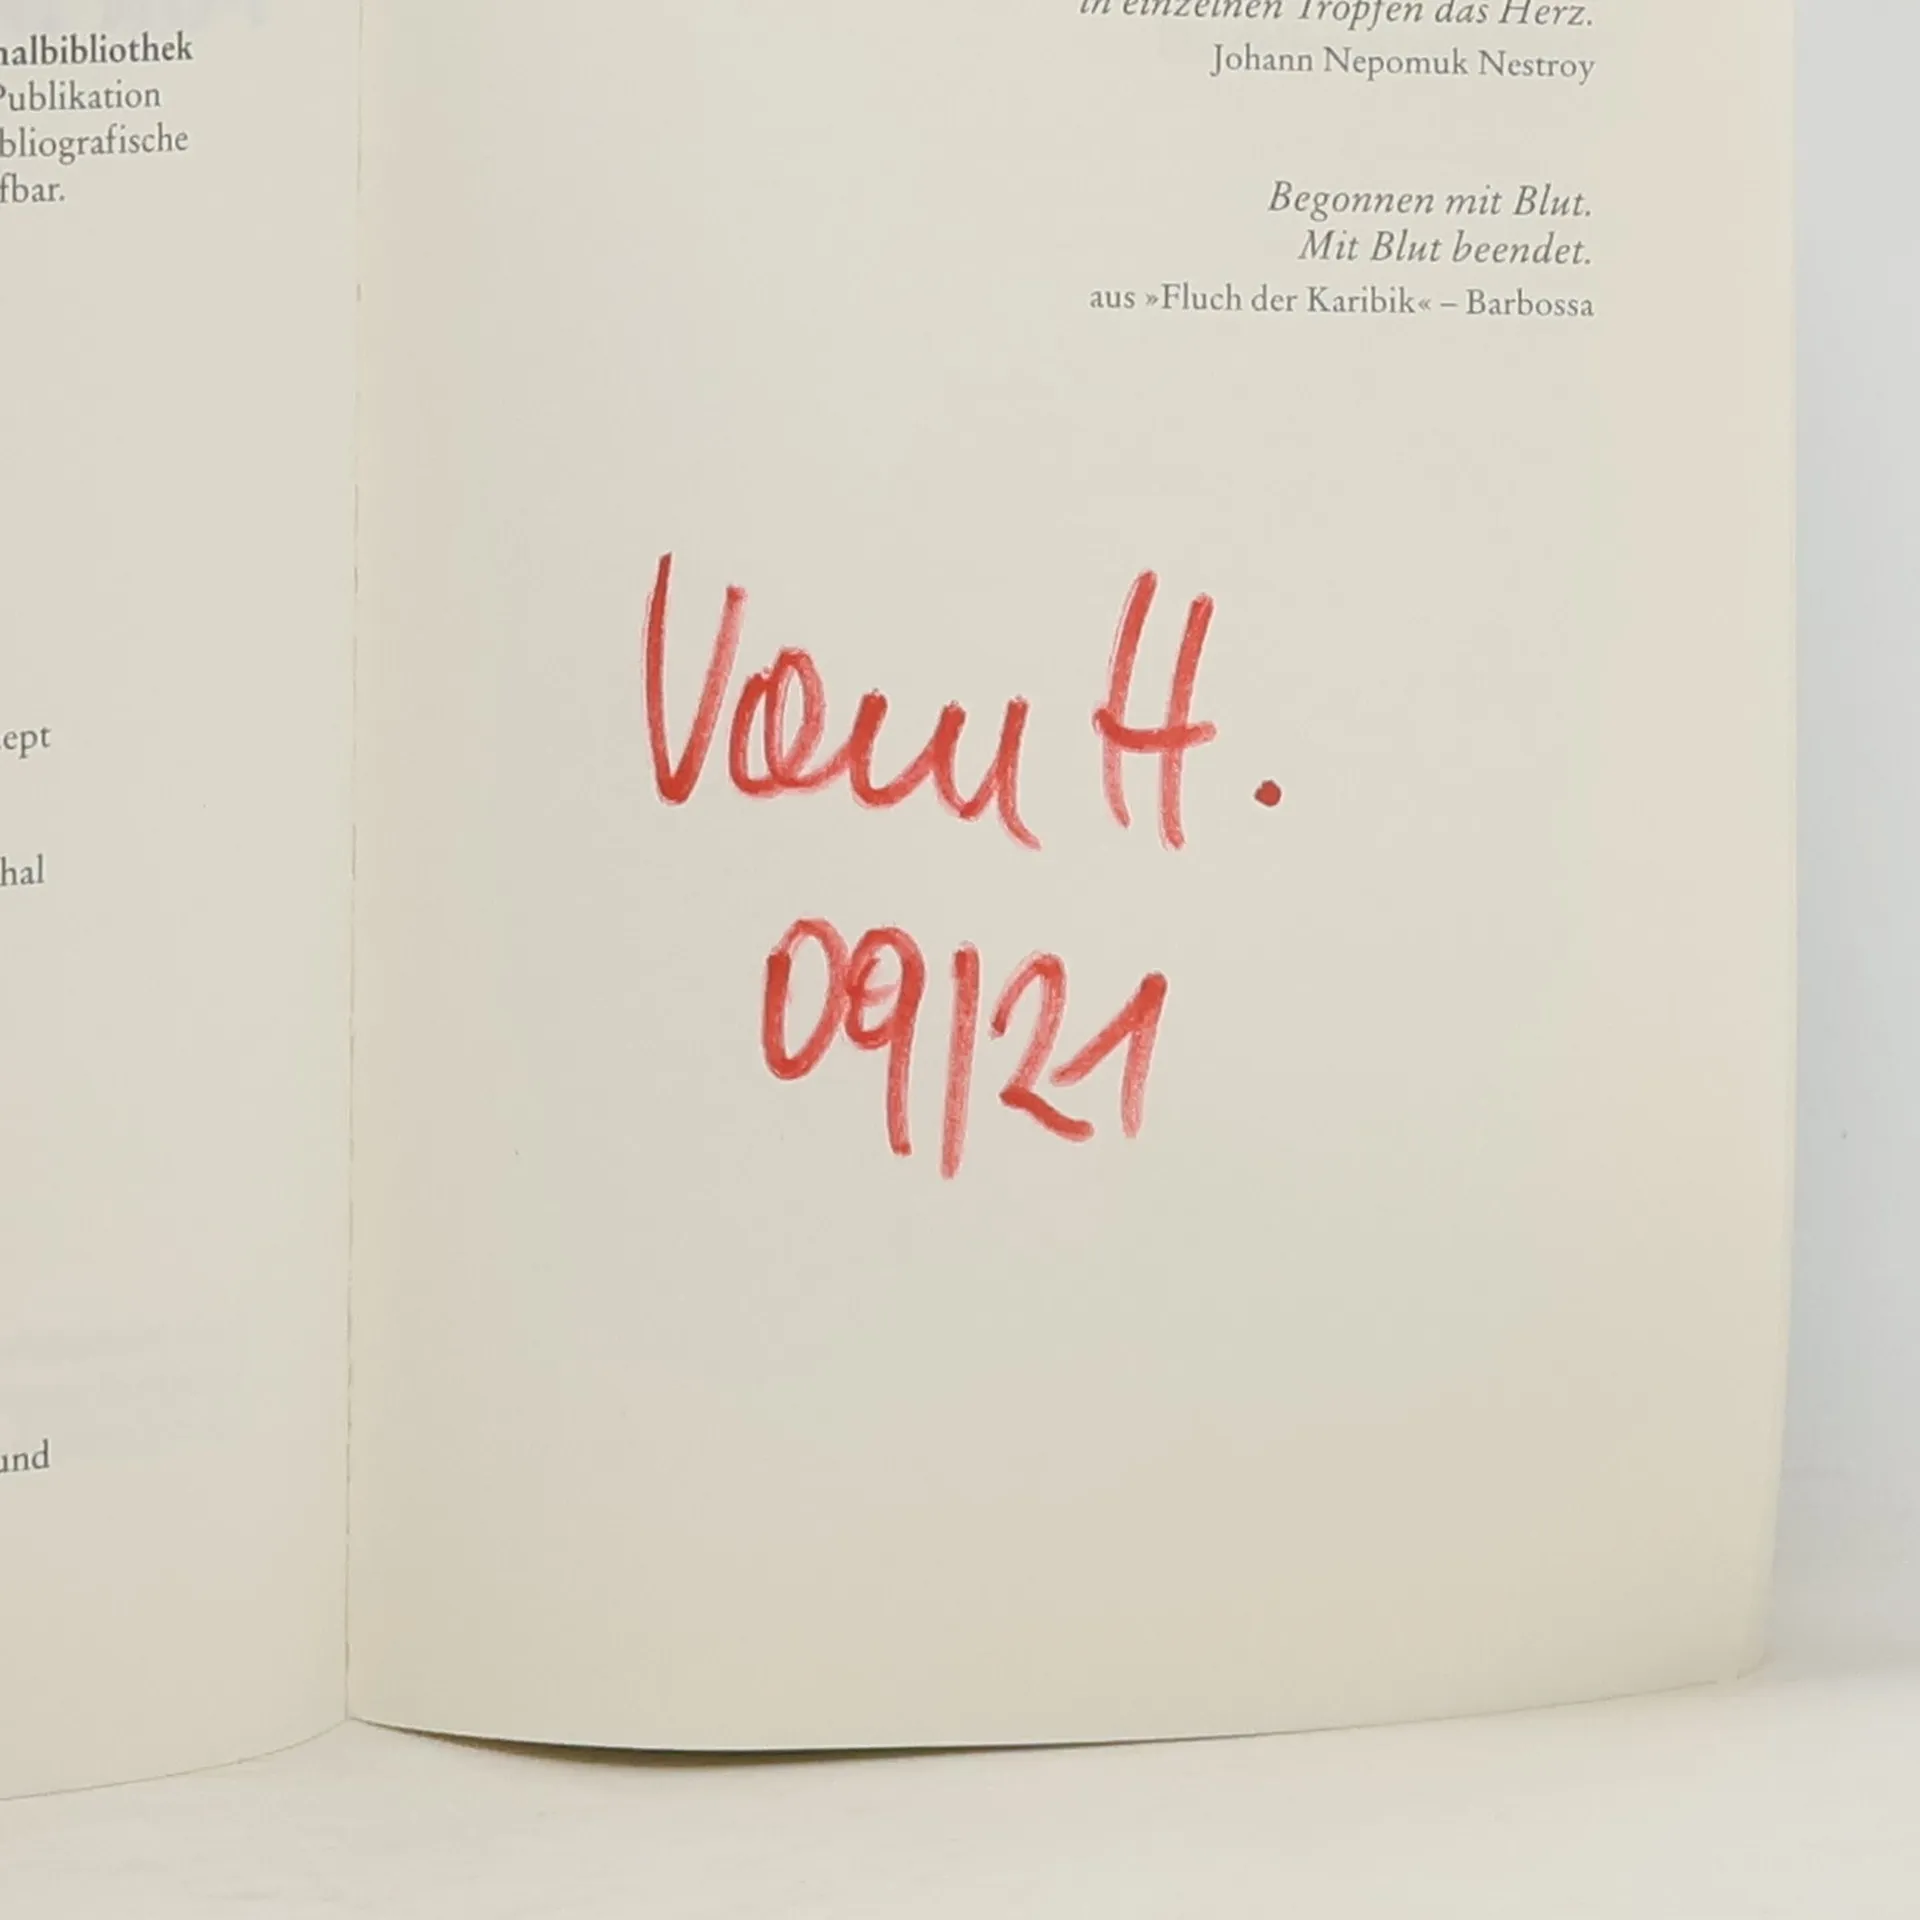 nalbibliothek
Publikation
bliografische
fbar.
ept
hal
und
in einzelnen Tropfen das Herz.
Johann Nepomuk Nestroy
Begonnen mit Blut.
Mit Blut beendet.
aus »Fluch der Karibik« – Barbossa
Vom H.
09/21